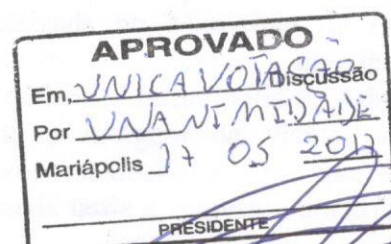 APROVADO
Em, UNICA VOTAÇAO Discussão
Por UNANIMIDADE
Mariápolis 17 05 2012
PRESIDENTE